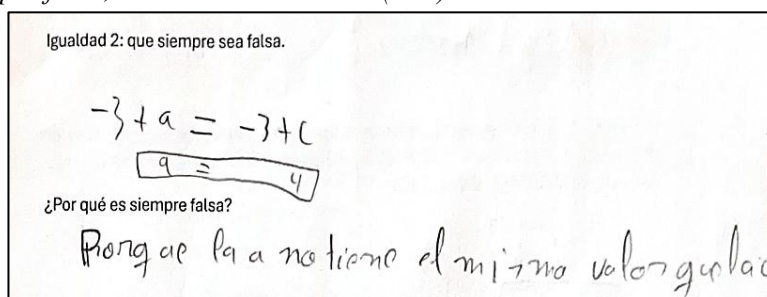 Igualdad 2: que siempre sea falsa.
-3+a = -3+c
a = 4
¿Por qué es siempre falsa?
Porque la a no tiene el mismo valor que la c